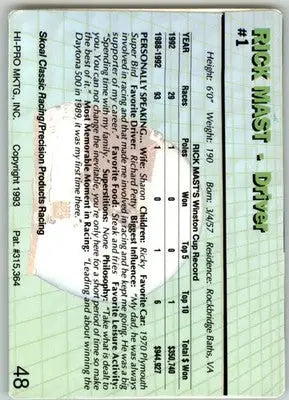 RICK MAST - Driver
#1
Height: 6'0" Weight: 190 Born: 3/4/57 Residence: Rockbridge Baths, VA
RICK MAST'S Winston Cup Record
YEAR Races Poles Won Top 5 Top 10 Total $ Won
1992 29 1 0 0 1 $350,740
1988-1992 93 1 0 1 6 $944,927
PERSONALLY SPEAKING... Wife: Sharon Children: Ricky Favorite Car: 1970 Plymouth
Super Bird Favorite Driver: Richard Petty Biggest Influence: "My dad, he was always
involved in racing and that made me involved in racing and he kept me going. He was a big
supporter of my career." Favorite Food: Steak and fries Favorite Leisure Activity:
"Spending time with my family." Superstitions: None Philosophy: "Take what is dealt to
you. You can not change the inevitable, you're only here for a short period of time so make
the best of it." Most Memorable Moment in Racing: "Leading and about winning the
Daytona 500 in 1989, it was my first time there."
Skoal Classic Racing/Precision Products Racing
HI-PRO MKTG., INC. Copyright 1993 Pat. #315,364
48